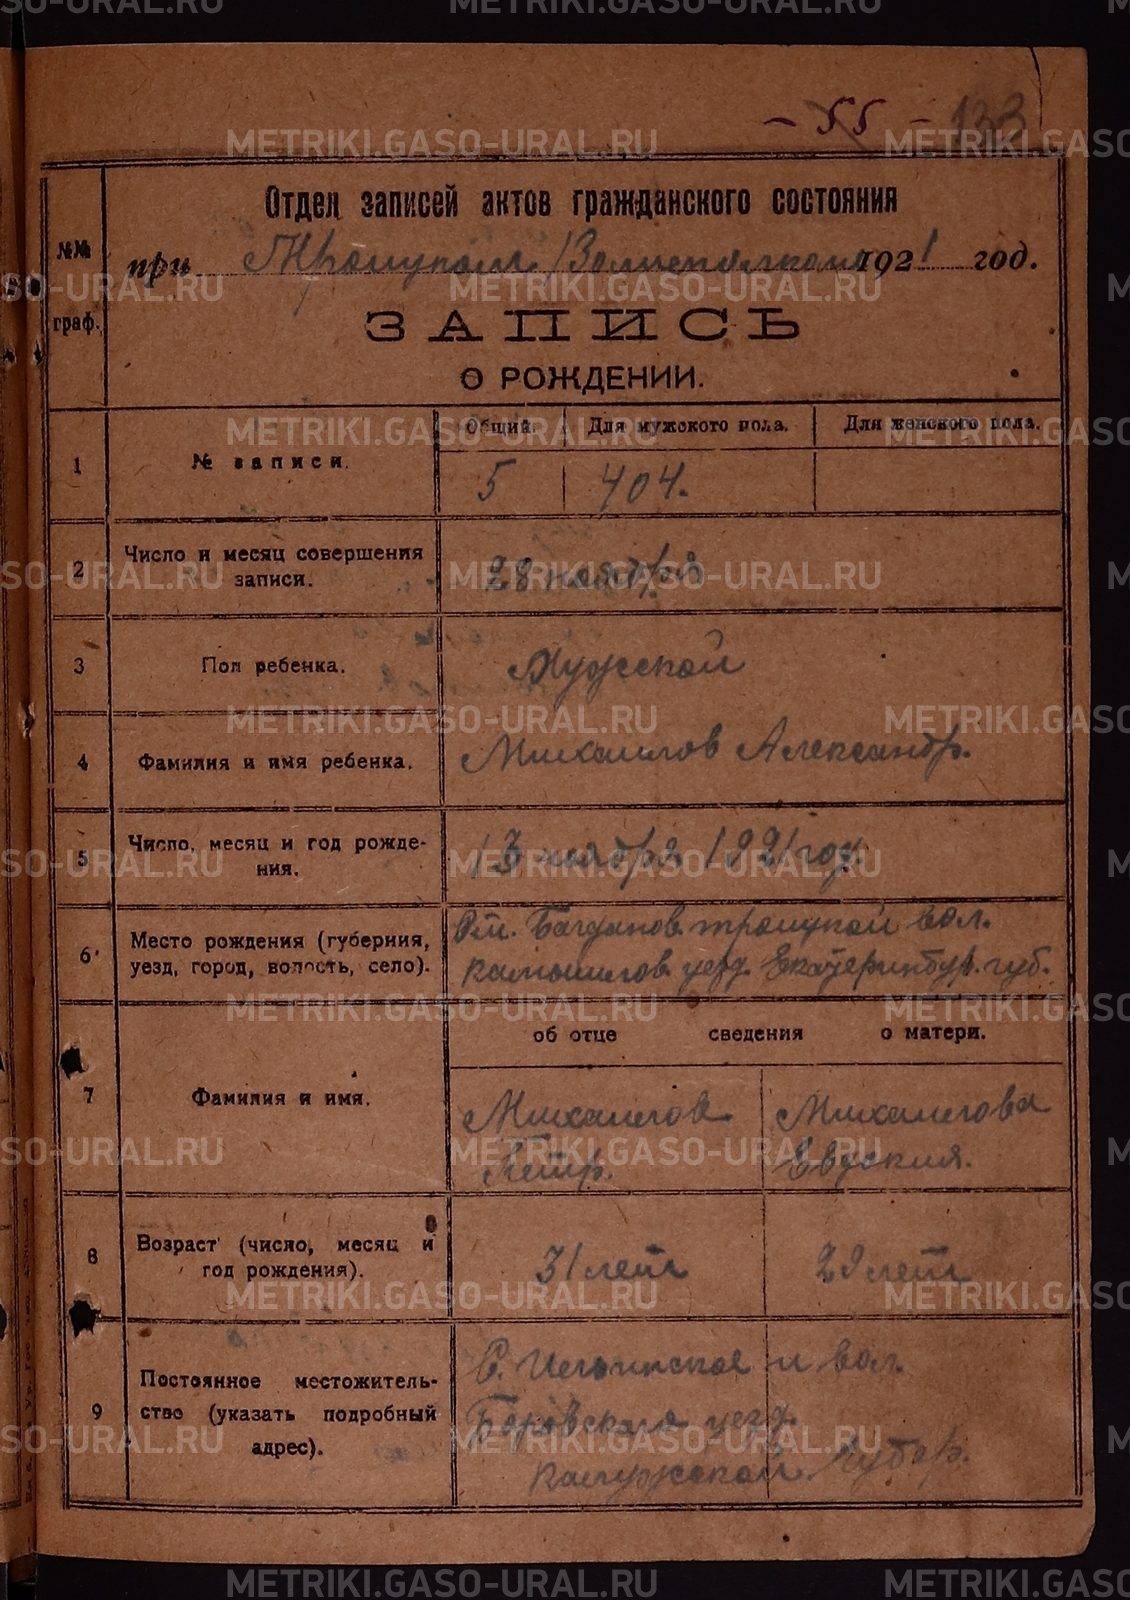 - 55 - 133
Отдел записей актов гражданского состояния
№№ граф.
при Троицком Волисполкоме 1921 год.
ЗАПИСЬ
О РОЖДЕНИИ.
Общий. Для мужского пола. Для женского пола.
1 № записи. 5 404.
2 Число и месяц совершения
записи. 28 ноября
3 Пол ребенка. Мужской
4 Фамилия и имя ребенка. Михаилов Александр.
5 Число, месяц и год рожде-
ния. 13 ноября 1921 год.
6 Место рождения (губерния,
уезд, город, волость, село).
Ст. Багданов. троицкой вол.
камышлов. уезд. Екатеринбур. губ.
об отце сведения о матери.
7 Фамилия и имя.
Михаилов Михаилова
Петр. Евдокия.
8 Возраст (число, месяц и
год рождения). 31 лет 29 лет
9 Постоянное местожитель-
ство (указать подробный
адрес).
С. и вол.
Боровского уезд.
калужской губер.
METRIKI.GASO-URAL.RU